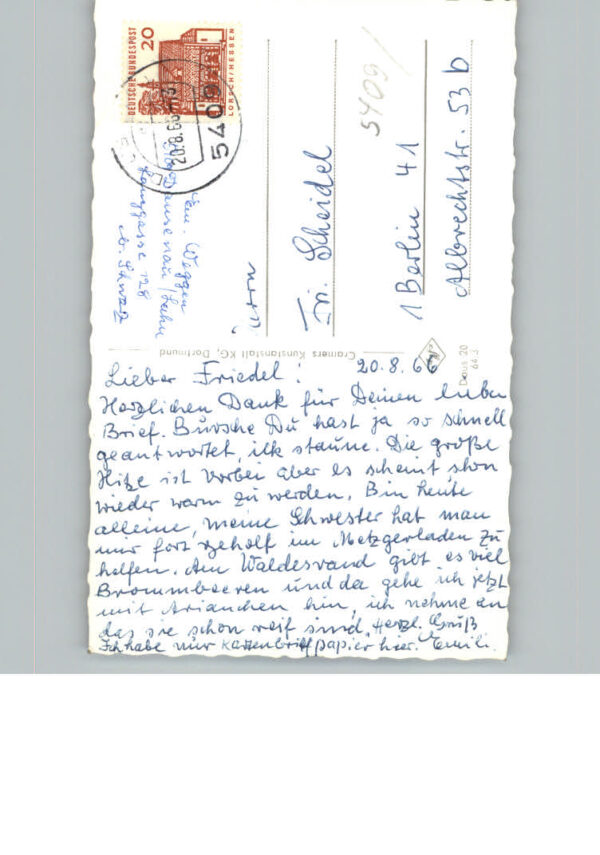 20.8.66
Lieber Friedel!
Herzlichen Dank für Deinen lieben
Brief. Bursche Du hast ja so schnell
geantwortet, ich staune. Die große
Hitze ist vorbei aber es scheint schon
wieder warm zu werden. Bin heute
alleine, meine Schwester hat man
mir fort geholt im Metzgerladen zu
helfen. Am Waldesrand gibt es viel
Brombeeren und da gehe ich jetzt
mit hin, ich nehme an
das sie schon reif sind. Herzl. Gruß
Ich habe nur Kartenbriefpapier hier. Emil.
DEUTSCHE BUNDESPOST
20
LORSCH/HESSEN
20.8.66
5409
Langgasse 128
Herrn
Fr. Scheidel
1 Berlin 41
Albrechtstr. 53 b
5409/
Cramers Kunstanstalt KG, Dortmund
Daus 20